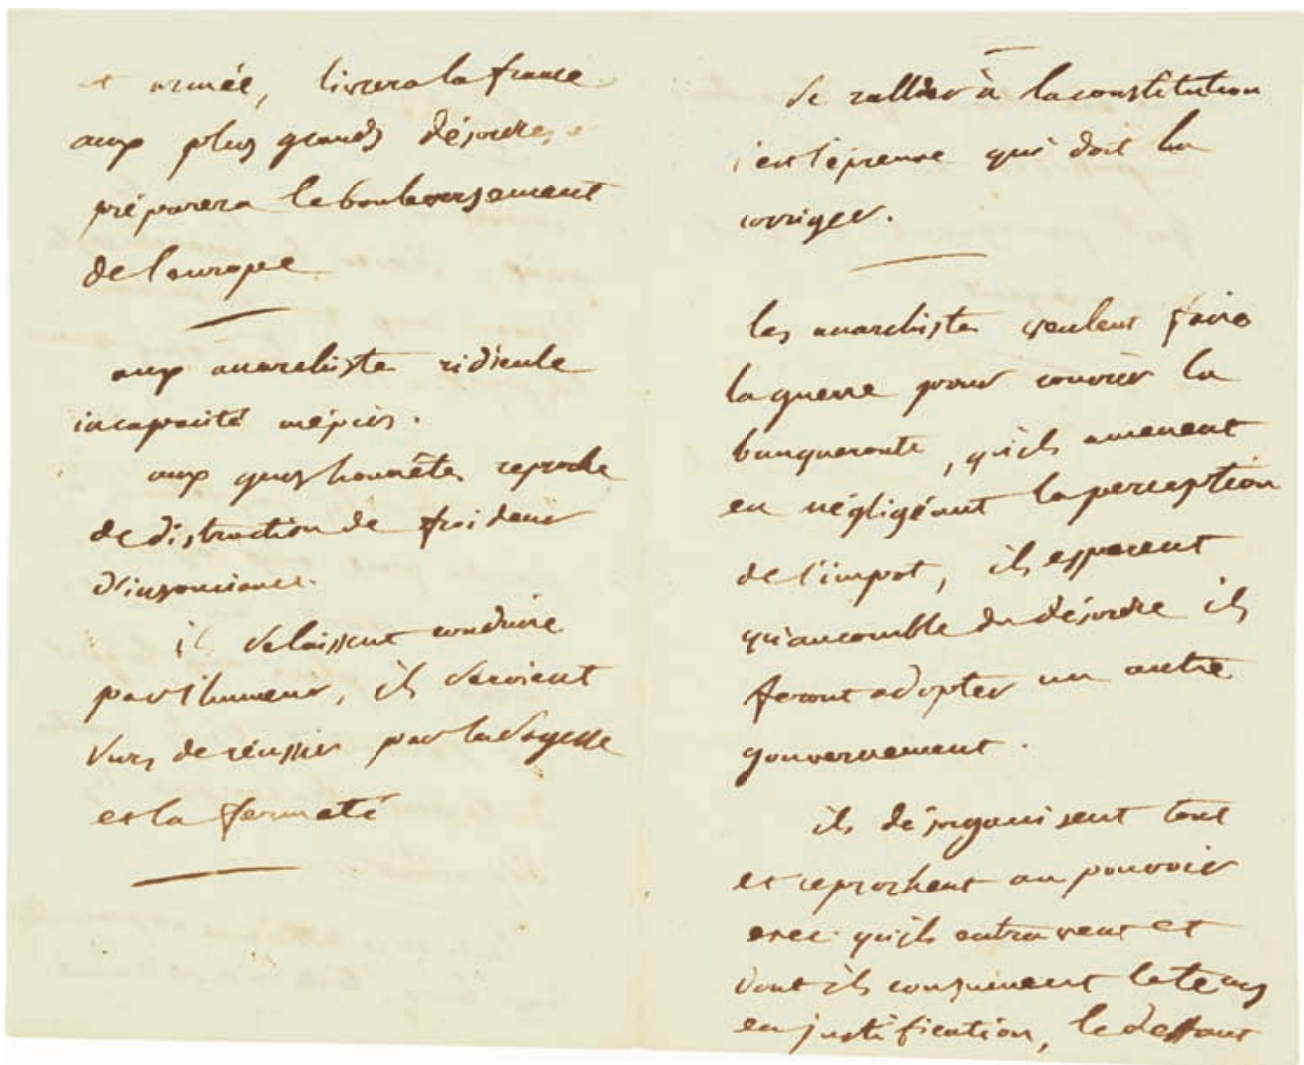 et armée, livrera la france
aux plus grands désordres, et
préparera le bouleversement
de l'europe
aux anarchiste ridicule
incapacité mépris.
aux gens honnêtes reproche
de distraction de froideur
d'insouciance.
ils se laissent conduire
par l'humeur, ils seroient
surs de réussir par la sagesse
et la fermeté
se rallier à la constitution
c'est l'épreuve qui doit la
corriger.
les anarchiste veulent faire
la guerre pour couvrir la
banqueroute, qu'ils amenent
en négligéant la perception
de l'impot, ils esperent
qu'au comble du désordre ils
feront adopter un autre
gouvernement.
ils désorganisent tout
et reprochent au pouvoir
exec. qu'ils entravent et
dont ils consument le tems
en justification, le deffaut